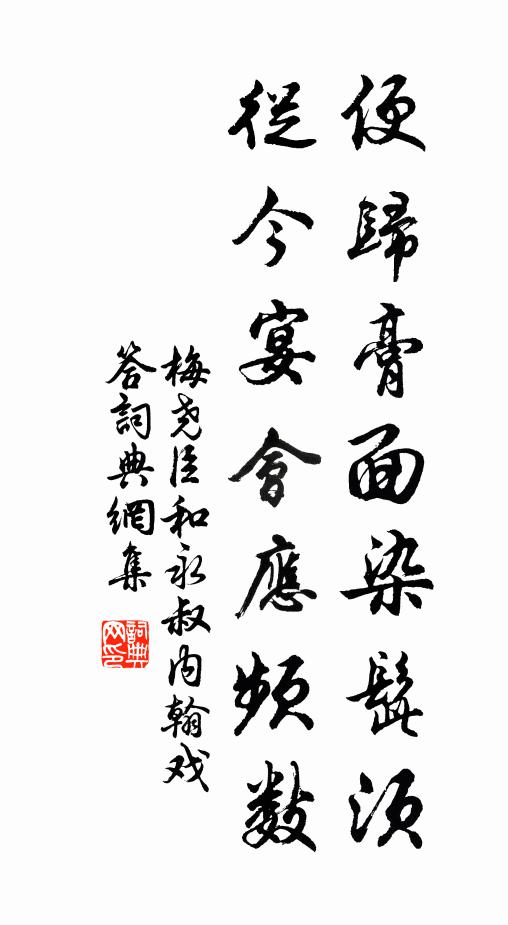 便歸膏面染髭須
從今宴會應頻數
梅尧臣和永叔内翰戏
答詞典網集
詞典
网印